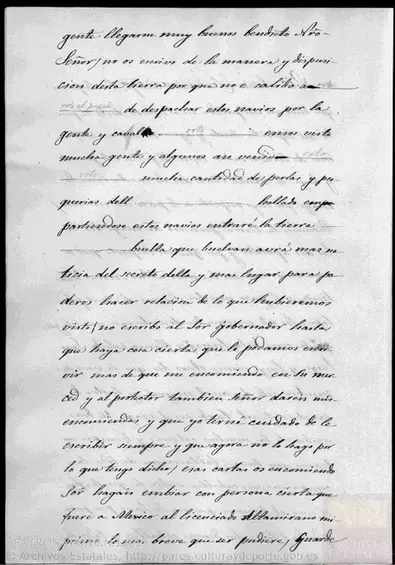 gente llegaron muy buenos bendicto Nro
Señor/ no os escrivo de la manera y dispusi
cion desta tierra por que no e salido a
roto el papel de despachar estos navios por la
gente y caballos roto emos visto
mucha gente y algunos an venido
mucha cantidad de perlas y pes
querias dell hallado em
partiendose estos navios entraré la tierra
buelta que buelvan avrá mas no
ticia del secreto della y mas lugar para po
deros hacer relacion de lo que hubieremos
visto/ no escribo al Sor gobernador hasta
que haya cosa cierta que le podamos escri
vir mas de que me encomiendo en su mer
ced y al portador tambien Señor dareis mis
encomiendas y que yo terné cuidado de le
escribir siempre y que agora no lo hago por
lo que tengo dicho/ esas cartas os encomiendo
Sor hagais embiar con persona cierta que
fuere a Mexico al licenciado Altamirano mi
primo lo mas breve que ser pudiere/ Guarde
© Archivos Estatales, http://pares.culturaydeporte.gob.es